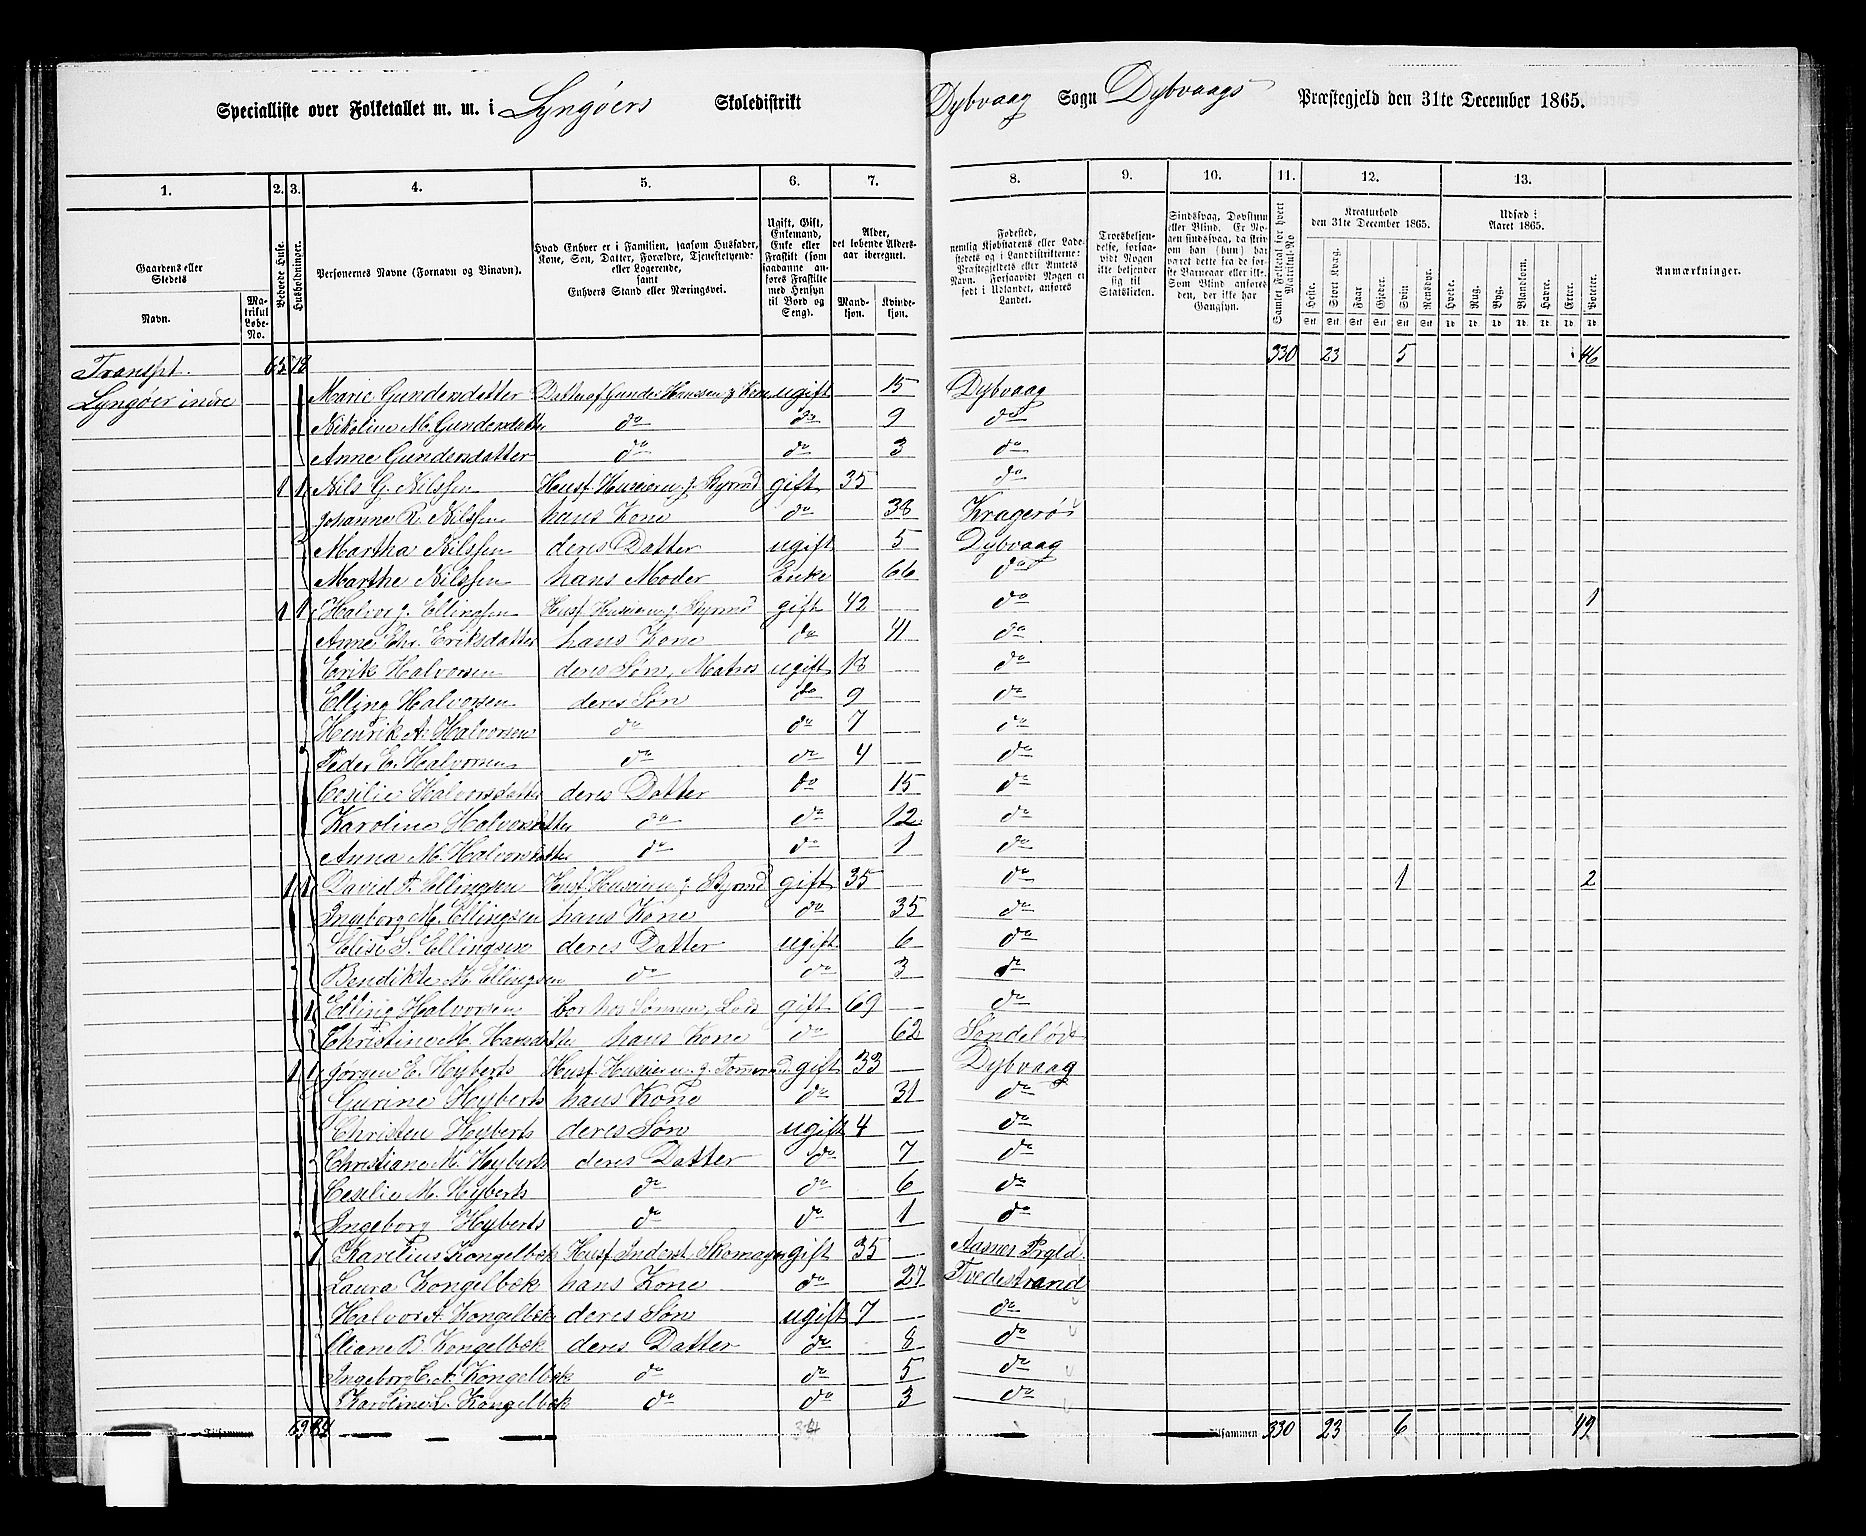 Specialliste over Folketallet m. m. i Lyngøers Skoledistrikt Dybvaag Sogn Dybvaags Præstegjeld den 31te December 1865.
1. 2. 3. 4. 5. 6. 7. 8. 9. 10. 11. 12. 13.
Gaardens eller Stedets Navn.
Matrikul Løbe-No.
Beboede Huse.
Husholdninger.
Personernes Navne (Fornavn og Tilnavn).
Hvad Enhver er i Familien, saasom Husfader, Kone, Søn, Datter, Forældre, Tjenestetyende eller Logerende, samt Enhvers Stand eller Næringsvei.
Ugift, Gift, Enkemand, Enke eller Fraskilt (som saadanne anføres Fraskilte med Hensyn til Bord og Seng).
Alder, det løbende Alders-aar iberegnet.
Mandkjøn. Kvindekjøn.
Fødested, nemlig Kjøbstadens eller Ladestedets og i Landdistrikterne: Præstegjeldets eller Amtets Navn. Forsaavidt Nogen er født i Udlandet, anføres Landet.
Troesbekjendelse, forsaavidt Nogen ikke bekjender sig til Statskirken.
Sindssvag, Døvstum eller Blind. Er Nogen sindssvag, da skrives om han (hun) har været dette fra de første Barneaar eller ikke. Som Blind anføres den, der ikke har Gangsyn.
Samlet Folketal for hvert Matrikul-No
Kreaturhold den 31te December 1865.
Heste. Stort Kvæg. Faar. Gjeder. Svin. Rensdyr.
Udsæd i Aaret 1865.
Hvede. Rug. Byg. Blandkorn. Havre. Erter. Poteter.
Anmærkninger.
Transpt. 65 78 330 23 5 46
Lyngøer indre Marie Gundersdatter Datter af Gunder Hanssen og Kone ugift 15 Dybvaag
Nikoline M. Gundersdatter do do 9 do
Anne Gundersdatter do do 3 do
1 1 Nils G. Nilssen Husf. Huseier og Styrmd gift 35 do
Johanne R. Nilssen hans Kone do 38 Kragerø
Martha Nilssen deres Datter ugift 5 Dybvaag
Marthe Nilssen hans Moder Enke 66 do
1 1 Halvor J. Ellingsen Husf. Huseier og Styrmd gift 42 do 1
Anne Chr. Eriksdatter hans Kone do 41 do
Erik Halvorsen deres Søn, Matros ugift 18 do
Elling Halvorsen deres Søn do 9 do
Henrik A. Halvorsen do do 7 do
Peder E. Halvorsen do do 4 do
Cesilie Halvorsdatter deres Datter do 15 do
Karoline Halvorsdatter do do 12 do
Anna M. Halvorsdatter do do 1 do
1 1 David A. Ellingsen Husf. Huseier og Styrmd gift 35 do 1 2
Ingeborg M. Ellingsen hans Kone do 35 do
Elise S. Ellingsen deres Datter ugift 6 do
Bendikte M. Ellingsen do do 3 do
1 Elling Halvorsen bor hos Sønnen, Lods gift 69 do
Christine M. Hansdatter hans Kone do 62 Søndeløv
1 1 Jørgen E. Hyberts Husf. Huseier og Tømmermd. gift 33 Dybvaag
Gurine Hyberts hans Kone do 31 do
Christen Hyberts deres Søn ugift 4 do
Christiane M. Hyberts deres Datter do 7 do
Cesilie M. Hyberts do do 6 do
Ingeborg Hyberts do do 1 do
1 Karelius Kongelbek Husf. Inderst Skomager gift 35 Aasnes Prgld.
Laura Kongelbek hans Kone do 27 Tvedestrand
Halvor A. Kongelbek deres Søn ugift 7 do
Eliane B. Kongelbek deres Datter do 8 do
Ingeborg C. A. Kongelbek do do 5 do
Karoline L. Kongelbek do do 3 do
Tilsammen 69 84 34 Tilsammen 330 23 6 49